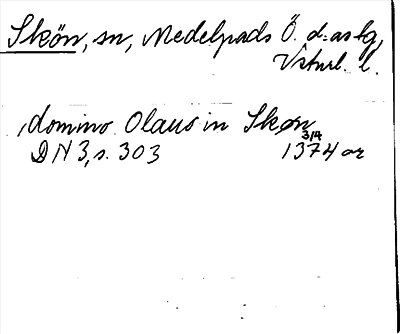 Skön, sn, Medelpads Ö. d:as tg,
Vstnrl. l.
, domino Olaus in Skøn
3/4
DN 3, s. 303 1374 or